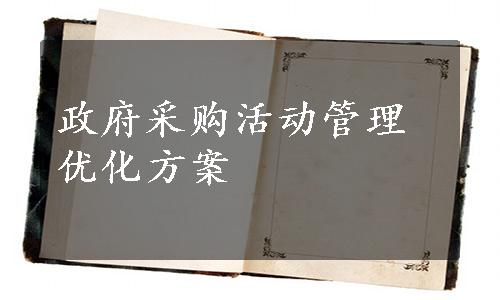 政府采购活动管理
优化方案